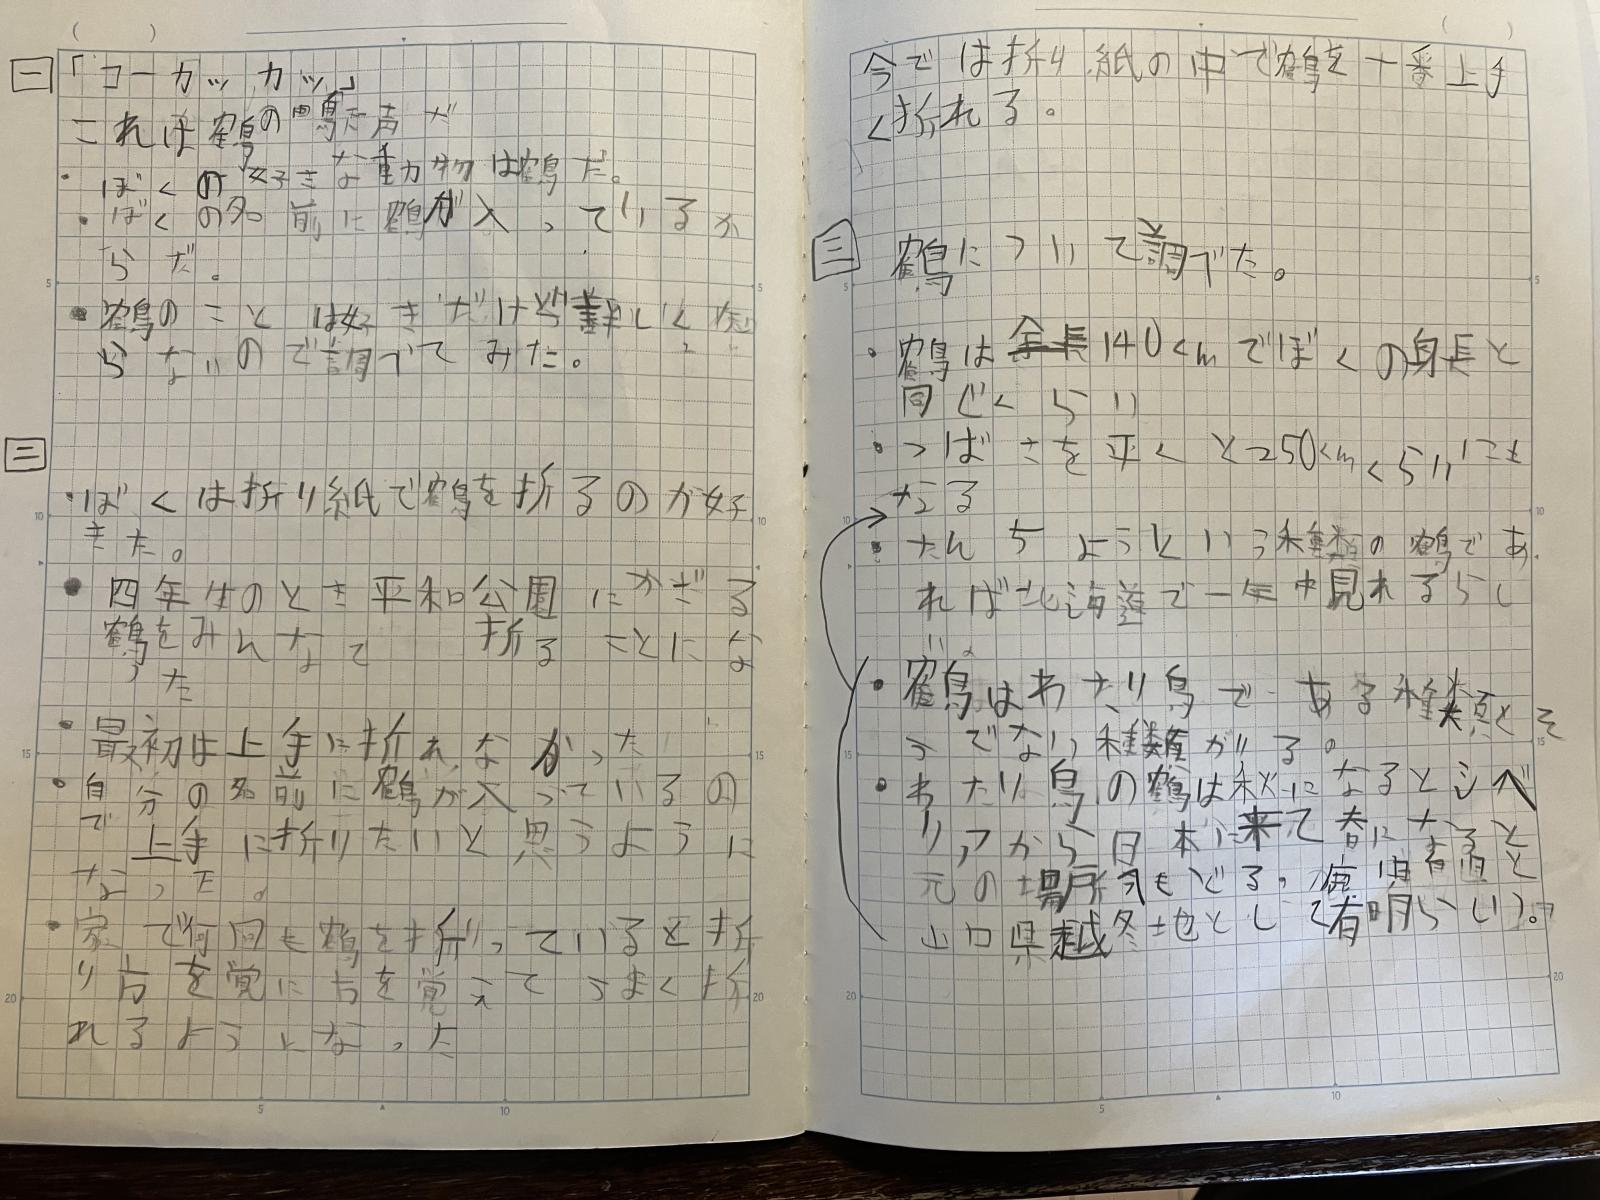 一
「コーカッカッ」
これは鶴の鳴き声だ
・ぼくの好きな動物は鶴だ。
・ぼくの名前に鶴が入っているか
らだ。
・鶴のことは好きだけど詳しく知
らないので調べてみた。
二
・ぼくは折り紙で鶴を折るのが好
きだ。
・四年生のとき平和公園にかざる
鶴をみんなで折ることにな
った
・最初は上手に折れなかった
・自分の名前に鶴が入っているの
で上手に折りたいと思うように
なった。
・家で何回も鶴を折っていると折
り方を覚に方を覚えてうまく折
れるようになった
今では折り紙の中で鶴を一番上手
く折れる。
三
鶴について調べた。
・鶴は全長140cmでぼくの身長と
同じくらい
・つばさを平くと250cmくらいにも
なる
・たんちょうという種類の鶴であ
れば北海道で一年中見れるらし
い。
・鶴はわたり鳥である種類とそ
うでない種類がいる。
・わたり鳥の鶴は秋になるとシベ
リアから日本に来て春になると
元の場所へもどる。
山口県 越冬地として有明らしい。
5
10
15
20
5
10
5
10
15
20
5
10
15
20
5
10
5
10
15
20